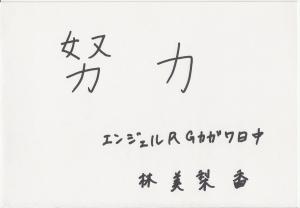 努力
エンジェルRGカガワ日中
林美梨香